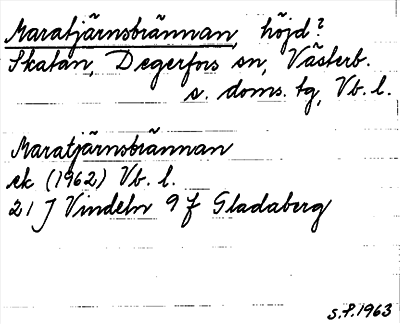 Maratjärnsbrännan, höjd?
Skatan, Degerfors sn, Västerb.
s. doms. tg, Vb. l.
Maratjärnsbrännan
ek (1962) Vb. l.
21 J Vindeln 9 f Gladaberg
S.P. 1963